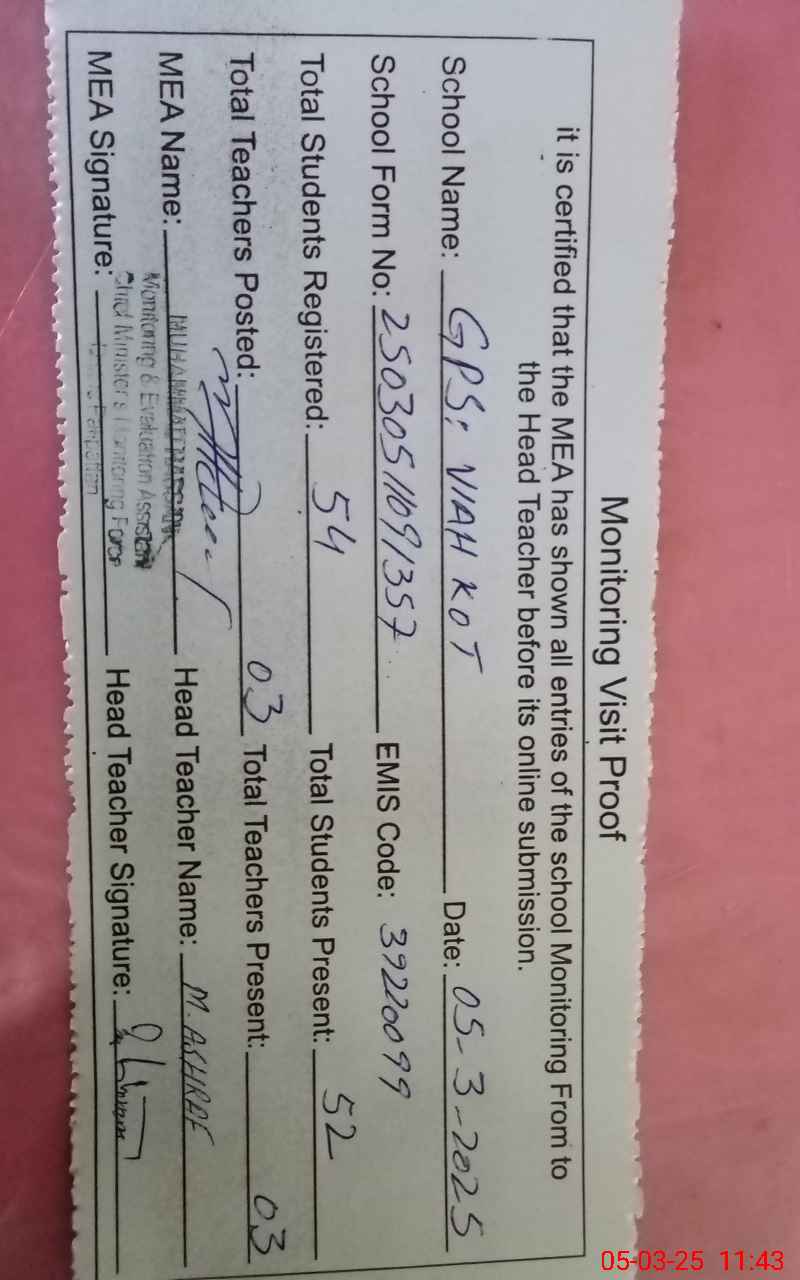 Monitoring Visit Proof
it is certified that the MEA has shown all entries of the school Monitoring From to
the Head Teacher before its online submission.
School Name: GPS: VIAH KOT Date: 05-3-2025
School Form No: 25030511091357 EMIS Code: 39220099
Total Students Registered: 54 Total Students Present: 52
Total Teachers Posted: 03 Total Teachers Present: 03
MEA Name: MUHAMMAD Head Teacher Name: M. ASHRAF
Monitoring & Evaluation Assistant
Chief Minister's Monitoring Force
MEA Signature: Pakpattan Head Teacher Signature:
05-03-25 11:43